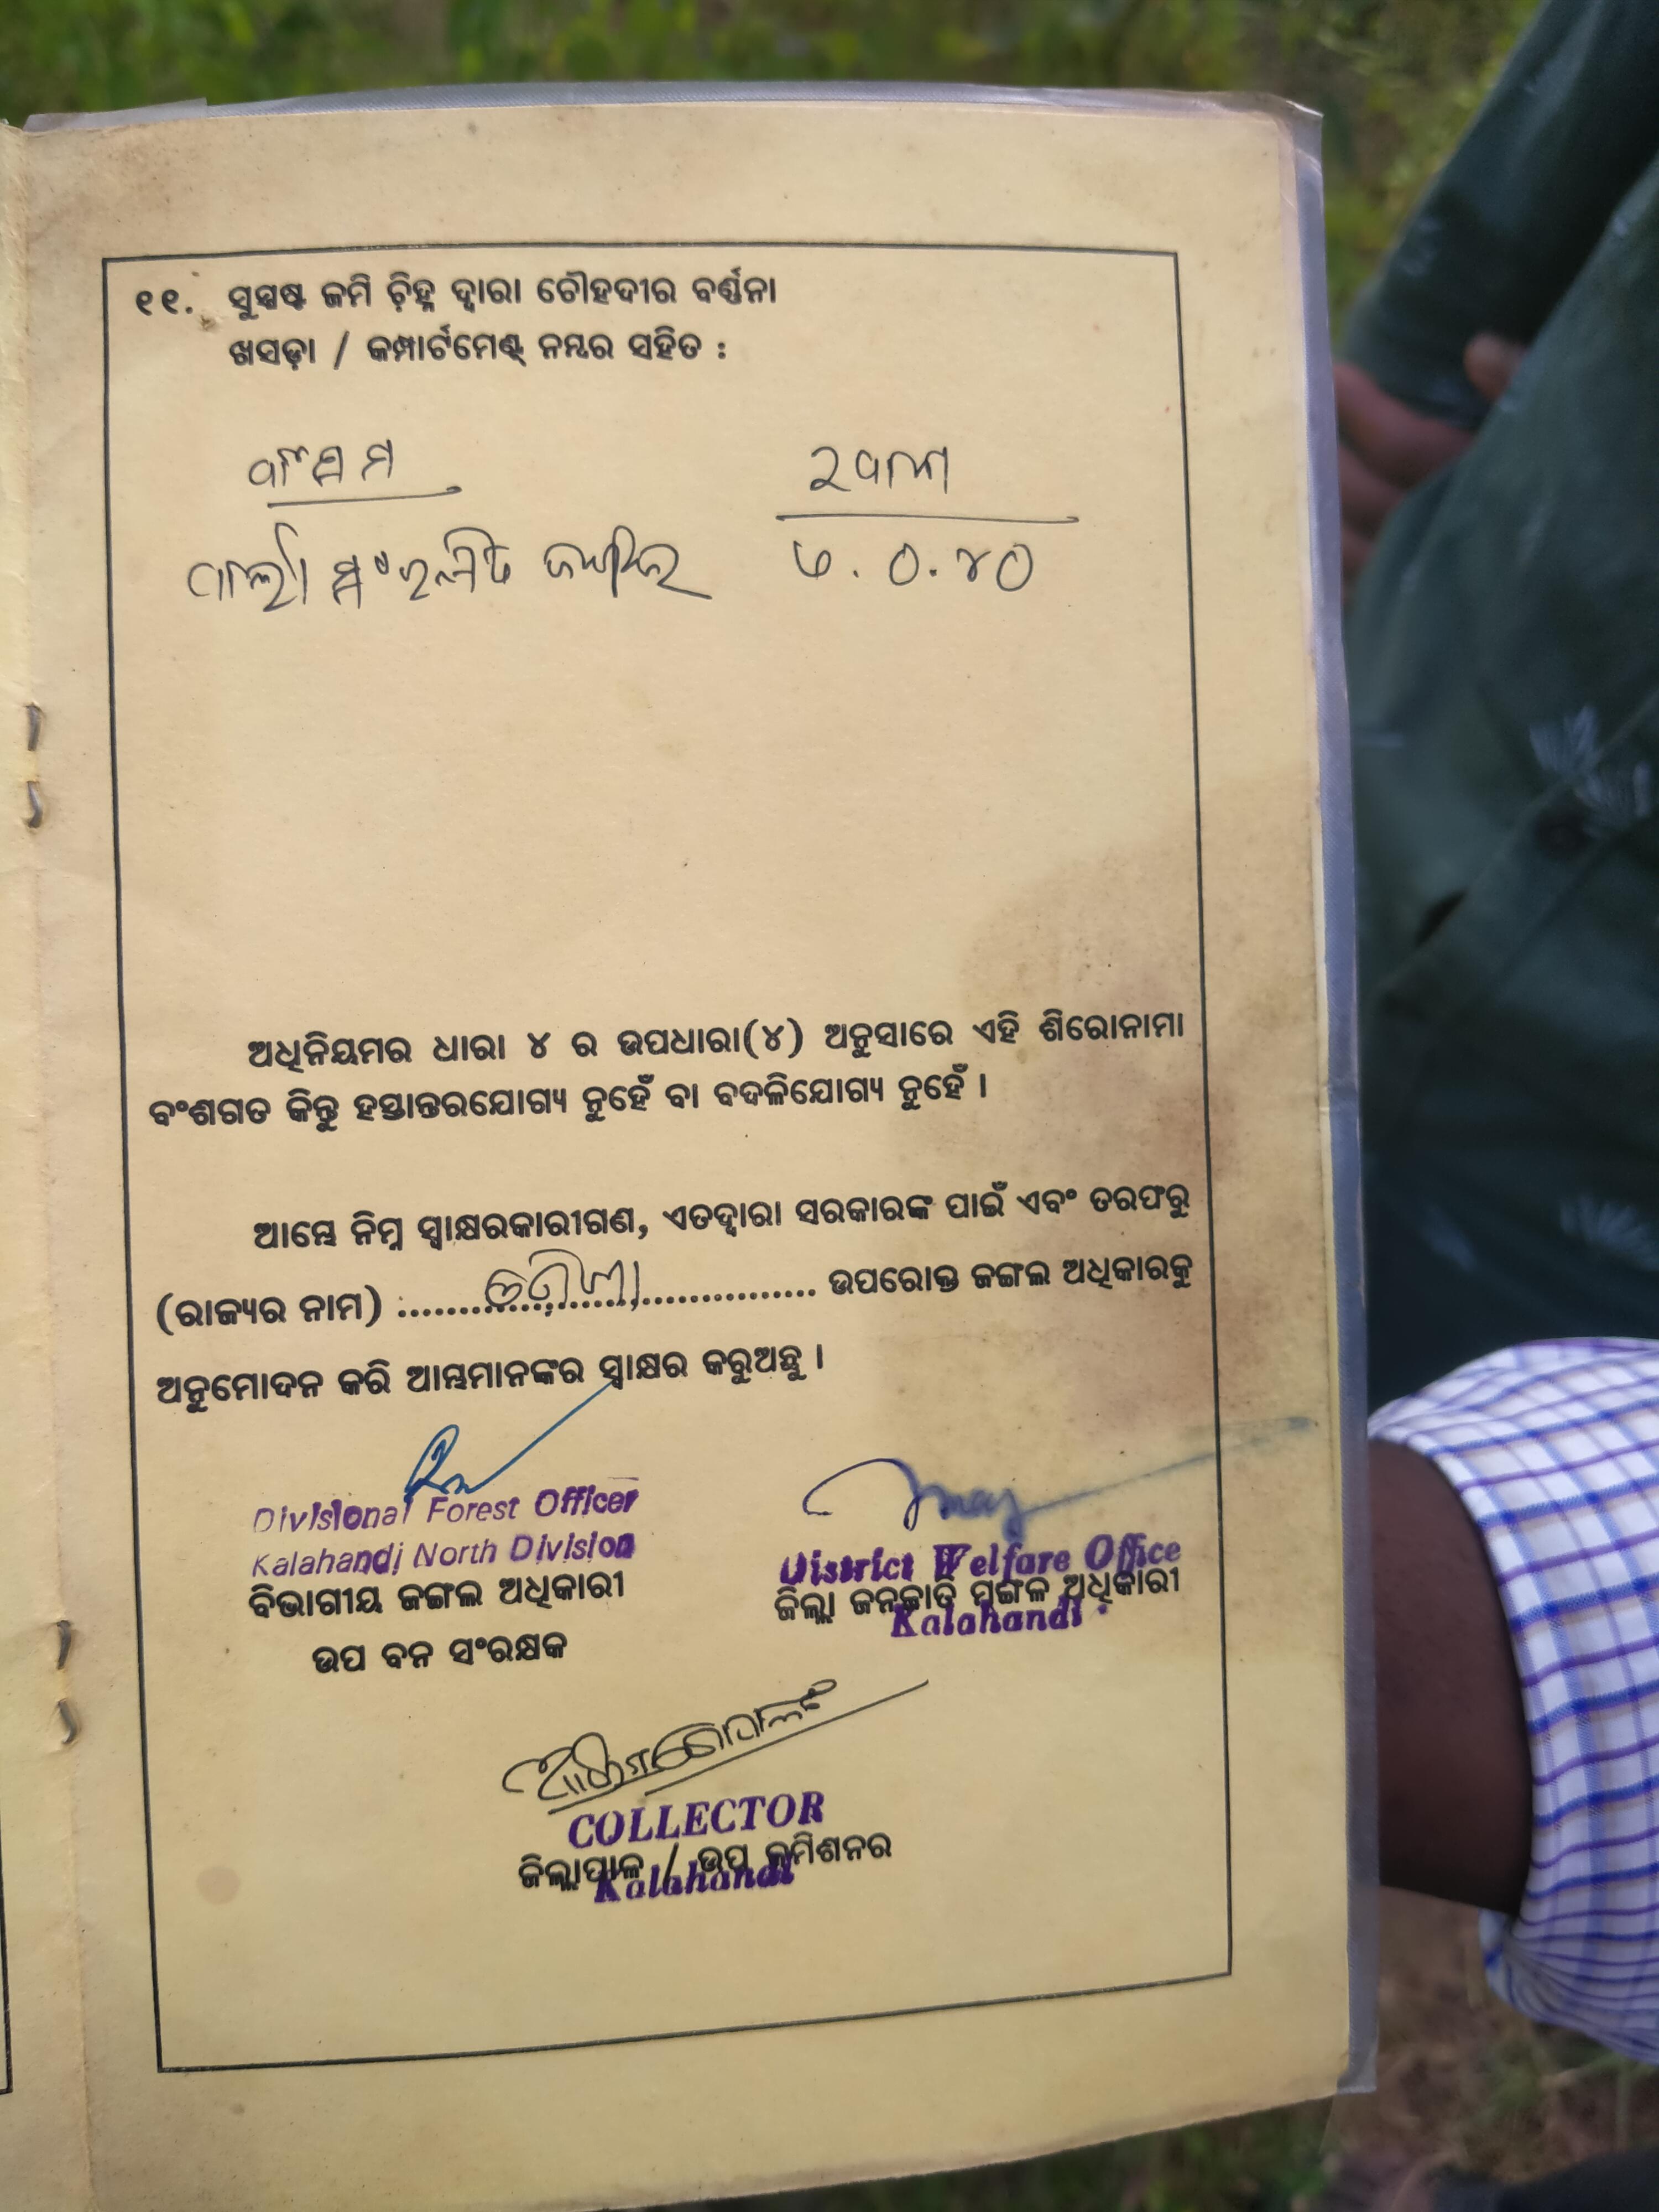 ୧୧. ସୁସ୍ପଷ୍ଟ ଜମି ଚ଼ିହ୍ନ ଦ୍ୱାରା ଚୌହଦୀର ବର୍ଣ୍ଣନା
ଖସଡ଼ା / କମ୍ପାର୍ଟମେଣ୍ଟ୍ ନମ୍ବର ସହିତ :
ଜଙ୍ଗଲ ୭.୦.୪୦
ଅଧିନିୟମର ଧାରା ୪ ର ଉପଧାରା(୪) ଅନୁସାରେ ଏହି ଶିରୋନାମା
ବଂଶଗତ କିନ୍ତୁ ହସ୍ତାନ୍ତରଯୋଗ୍ୟ ନୁହେଁ ବା ବଦଳିଯୋଗ୍ୟ ନୁହେଁ ।
ଆମ୍ଭେ ନିମ୍ନ ସ୍ୱାକ୍ଷରକାରୀଗଣ, ଏତଦ୍ୱାରା ସରକାରଙ୍କ ପାଇଁ ଏବଂ ତରଫରୁ
(ରାଜ୍ୟର ନାମ) ଓଡ଼ିଶା ଉପରୋକ୍ତ ଜଙ୍ଗଲ ଅଧିକାରକୁ
ଅନୁମୋଦନ କରି ଆମ୍ଭମାନଙ୍କର ସ୍ୱାକ୍ଷର କରୁଅଛୁ ।
Divisional Forest Officer
Kalahandi North Division
ବିଭାଗୀୟ ଜଙ୍ଗଲ ଅଧିକାରୀ
ଉପ ବନ ସଂରକ୍ଷକ
District Welfare Office
ଜିଲ୍ଲା ଜନଜାତି ମଙ୍ଗଳ ଅଧିକାରୀ
Kalahandi
COLLECTOR
ଜିଲ୍ଲାପାଳ / ଉପ କମିଶନର
Kalahandi